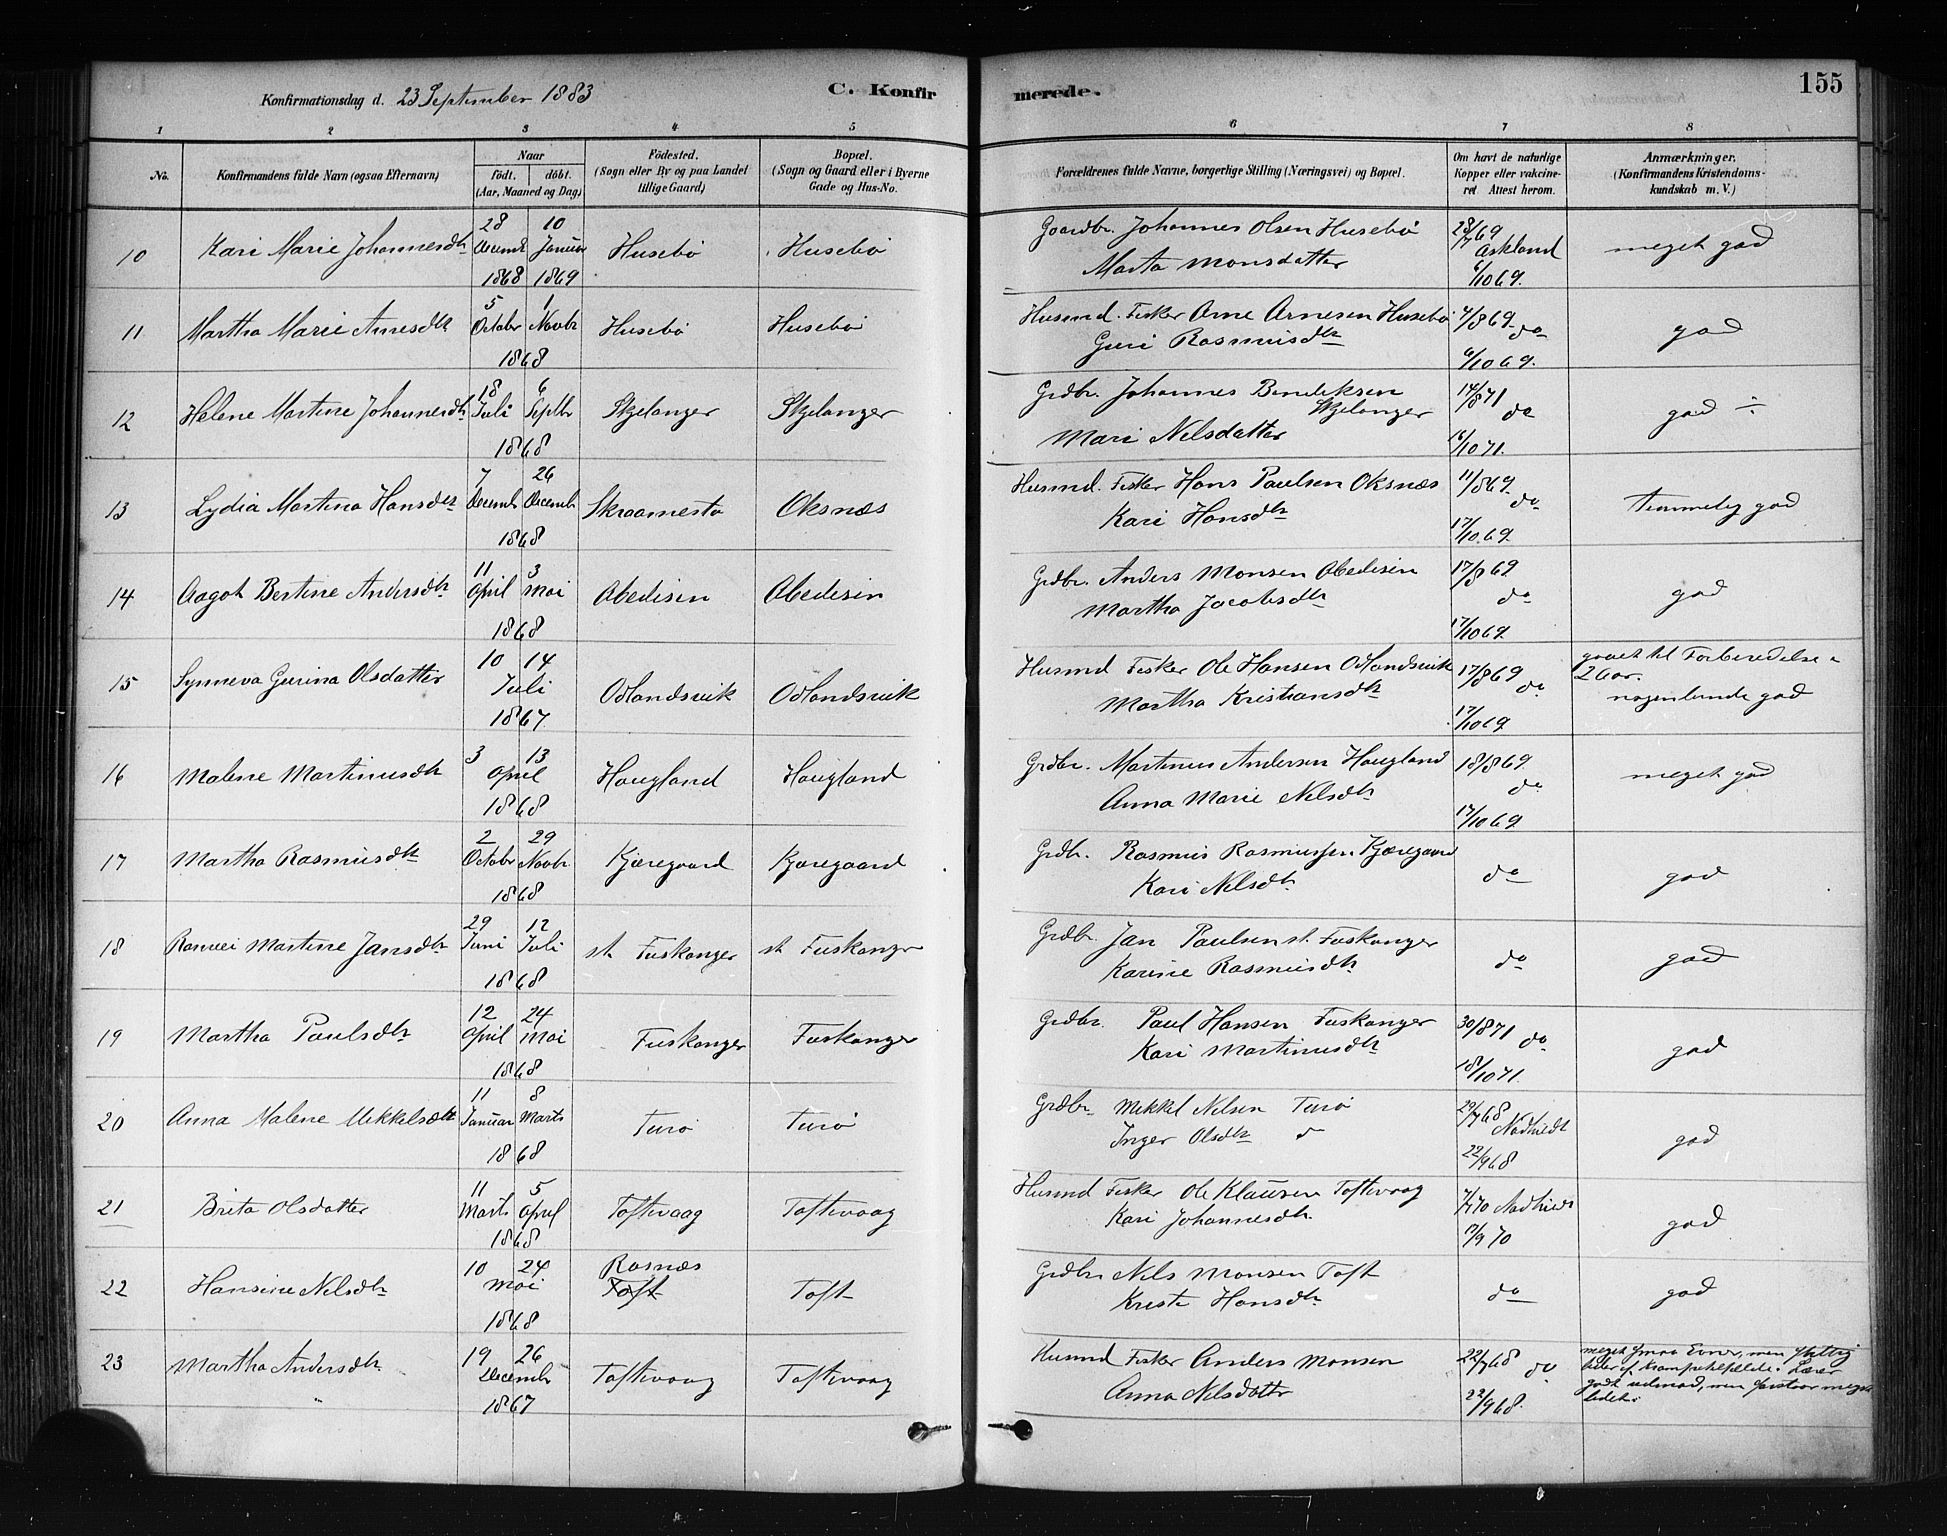 Konfirmationsdag d. 23 September 1883 C. Konfir merede. 155
1 2 3 4 5 6 7 8
No. Konfirmandens fulde Navn (ogsaa Efternavn) Naar født. døbt. (Aar, Maaned og Dag) Fødested. (Sogn eller By og paa Landet tillige Gaard) Bopæl. (Sogn og Gaard eller i Byerne Gade og Hus-No. Forældrenes fulde Navne, borgerlige Stilling (Næringsvei) og Bopæl. Om havt de naturlige Kopper eller vakcineret. Attest herom. Anmærkninger. (Konfirmandens Kristendomskundskab m. V.)
10 Kari Marie Johannesdtr 28 Decembr 1868 10 Januar 1869 Husebø Husebø Gaardbr. Johannes Olsen Husebø 28/7 69 Askland meget god
Marta Monsdatter 6/10 69.
11 Martha Marie Arnesdtr 5 October 1 Novbr 1868 Husebø Husebø Husmd. Fisker Arne Arnesen Husebø 4/8 69 do god
Guri Rasmusdtr 6/10 69.
12 Helene Martine Johannesdtr 18 Juli 6 Septbr 1868 Skjelanger Skjelanger Grdbr. Johannes Bendiksen Skjelanger 14/8 71 do god ÷
Mari Nelsdatter 16/10 71.
13 Lydia Martina Hansdtr 7 Decembr 26 Decembr 1868 Skraamestø Oksnæs Husmd. Fisker Hans Paulsen Oksnæs 11/8 69. do temmelig god
Kari Hansdtr 17/10 69.
14 Aagot Bertine Andersdtr 11 April 3 Mai 1868 Abedisen Abedisen Grdbr. Anders Monsen Abedisen 17/8 69 do god
Martha Jacobsdtr 17/10 69.
15 Synneva Gurina Olsdatter 10 14 Juli 1867 Odlandsvik Odlandsvik Husmd Fisker Ole Hansen Odlandsvik 17/8 69 do gaaet til Forberedelse i 2 Aar.
Martha Kristiansdtr 17/10 69 nogenlunde god
16 Malene Martinusdtr 3 13 April 1868 Hougland Hougland Grdbr. Martinus Andersen Hougland 18/8 69. do meget god
Anna Marie Nelsdtr 17/10 69
17 Martha Rasmusdtr 2 October 29 Novbr 1868 Kjæregaard Kjæregaard Grdbr. Rasmus Rasmussen Kjæregaard do god
Kari Nelsdtr
18 Ranvei Martine Jansdtr 29 Juni 12 Juli 1868 st. Fuskanger st Fuskanger Grdbr. Jan Paulsen st. Fuskanger do god
Karine Rasmusdtr
19 Martha Paulsdtr 12 April 24 Mai 1868 Fuskanger Fuskanger Grdbr. Paul Hansen Fuskanger 30/8 71 do god
Kari Martinusdtr 18/10 71.
20 Anna Malene Mikkelsdtr 11 Januar 8 Marts 1868 Turø Turø Grdbr. Mikkel Nelsen Turø 29/7 68 god
Inger Olsdtr d 22/9 68
21 Brita Olsdatter 11 Marts 5 April 1868 Toftevaag Toftevaag Husmd Fisker Ole Klausen Toftevaag 7/7 70 god
Kari Johannesdtr. 17/9 70
22 Hansine Nelsdtr 10 24 Mai 1868 Rosnæs Toft Toft Grdbr. Nels Monsen Toft do god
Kriste Hansdtr
23 Martha Andersdtr 19 26 Decembr 1867 Toftevaag Toftevaag Husmd Fisker Anders Monsen 22/7 68 do meget smaa Evner, men flittig
Anna Nelsdattr 22/9 68. lider af krampetilfælde. Læser
godt udenad, men forstaar meget
lidet.